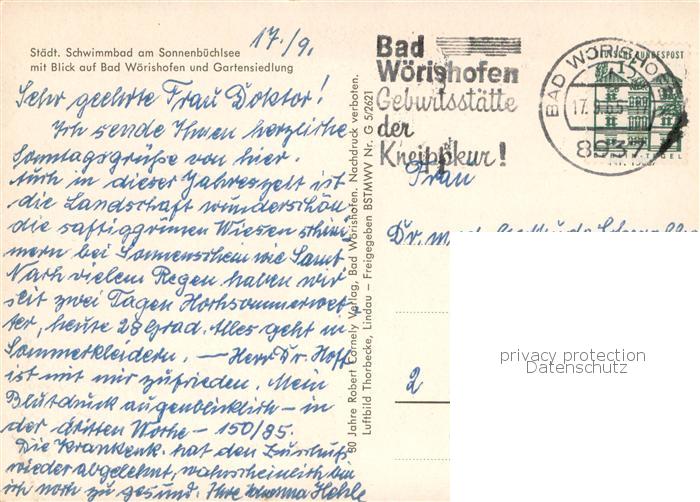 Städt. Schwimmbad am Sonnenbüchlsee
mit Blick auf Bad Wörishofen und Gartensiedlung
17./9.
Sehr geehrte Frau Doktor!
Ich sende Ihnen herzliche
Sonntagsgrüße von hier.
Auch in dieser Jahreszeit ist
die Landschaft wunderschön
die saftiggrünen Wiesen schim
mern bei Sonnenschein wie Samt
Nach vielem Regen haben wir
seit zwei Tagen Hochsommerwet-
ter, heute 28 Grad. Alles geht in
Sommerkleidern. — Herr Dr. Hoff
ist mit mir zufrieden. Mein
Blutdruck augenblicklich – in
der dritten Woche – 150/85.
Die Krankenk. hat den Zuschuß
wieder abgelehnt, wahrscheinlich bin
ich noch zu gesund. Ihre Hehle
80 Jahre Robert Cornely Verlag, Bad Wörishofen. Nachdruck verboten.
Luftbild Thorbecke, Lindau – Freigegeben BSTMWV Nr. G 5/2621
Bad
Wörishofen
Geburtsstätte
der
Kneippkur!
BAD WÖRISHO
17.9.65
8937
DEUTSCHE BUNDESPOST
15
TEGEL
Frau
Dr. med.
2
privacy protection
Datenschutz